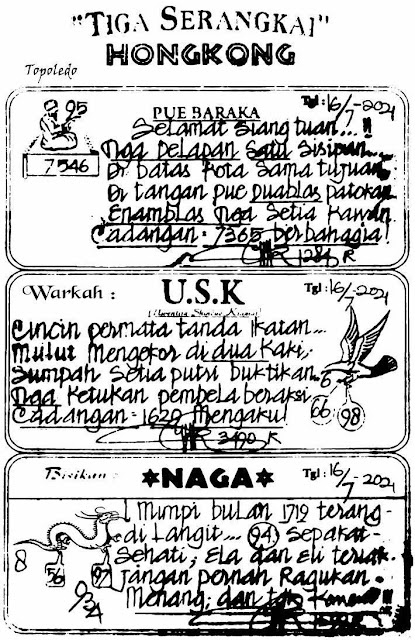 "TIGA SERANGKAI"
HONGKONG
Topoledo
95
7546
PUE BARAKA
Tgl : 16/7-2021
Selamat siang tuan...!!
Nga Delapan satu sisipan...
Di batas kota sama tujuan
Di tangan pue duablas patokan
Enamblas nga setia kawan
Cadangan = 7365 berbahagia!
1284 R
Warkah :
U.S.K
Tgl : 16/7-2021
Cincin permata tanda ikatan...
Mulut mengekor di dua kaki,
Sumpah setia putri buktikan.
Nga ketukan pembela beraksi
Cadangan = 1629 mengaku!
3490 R
6
66
98
Bisikan :
NAGA
Tgl : 16/7-2021
Mimpi bulan 1719 terang
di langit... 94 sepakat
sehati, Ela dan Eli teriak
jangan pernah Ragukan
Menang, dan
8
56
97
034